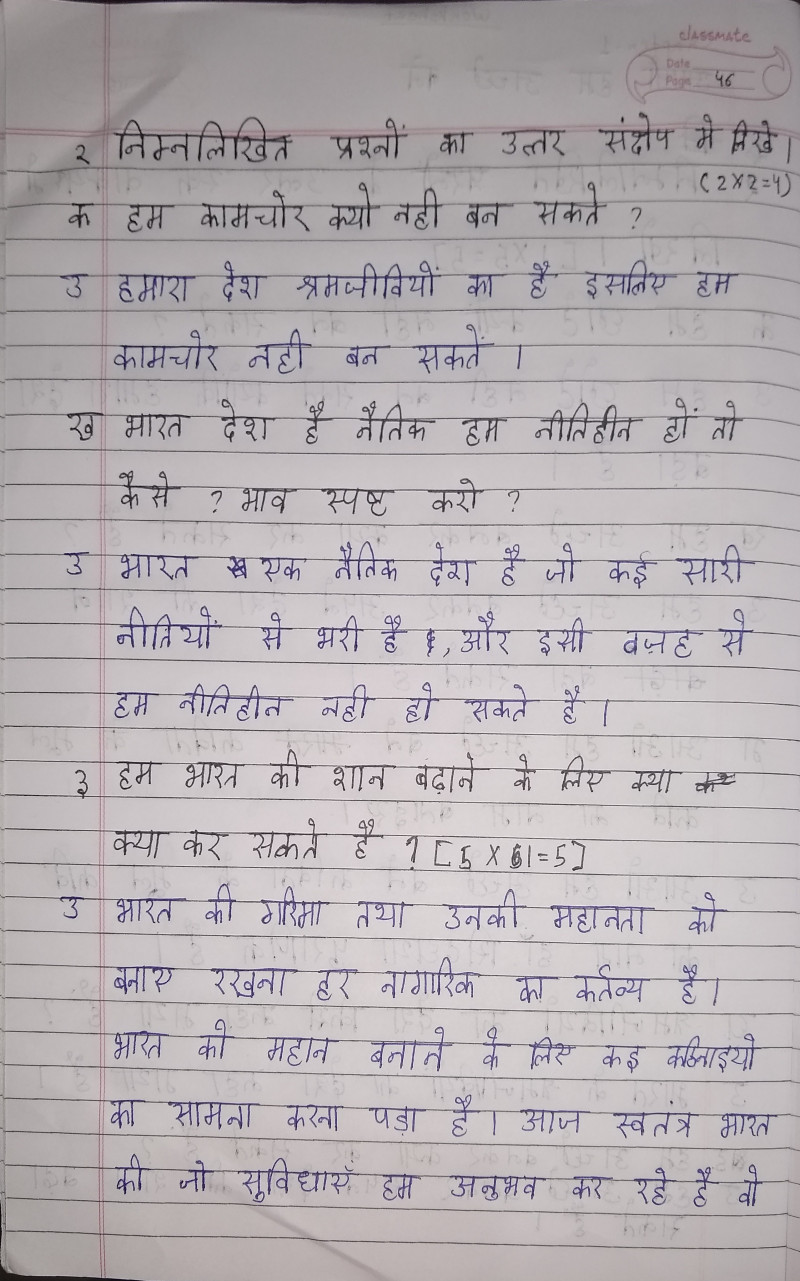 classmate
Date
Page 46
२ निम्नलिखित प्रश्नों का उत्तर संक्षेप मे लिखे।
(2×2=4)
क हम कामचोर क्यो नही बन सकते ?
उ हमारा देश श्रमजीवियों का है इसलिए हम
कामचोर नही बन सकतें ।
ख भारत देश है नैतिक हम नीतिहीन हों तो
कैसे ? भाव स्पष्ट करो ?
उ भारत एक नैतिक देश है जो कई सारी
नीतियों से भरी है , और इसी वजह से
हम नीतिहीन नही हो सकते है ।
३ हम भारत की शान बढ़ाने के लिए क्या
क्या कर सकते है ? [5 × 1=5]
उ भारत की गरिमा तथा उनकी महानता को
बनाए रखना हर नागरिक का कर्तव्य है।
भारत को महान बनाने के लिए कई कठिनाइयो
का सामना करना पड़ा है । आज स्वतंत्र भारत
की जो सुविधाएँ हम अनुभव कर रहे है वो